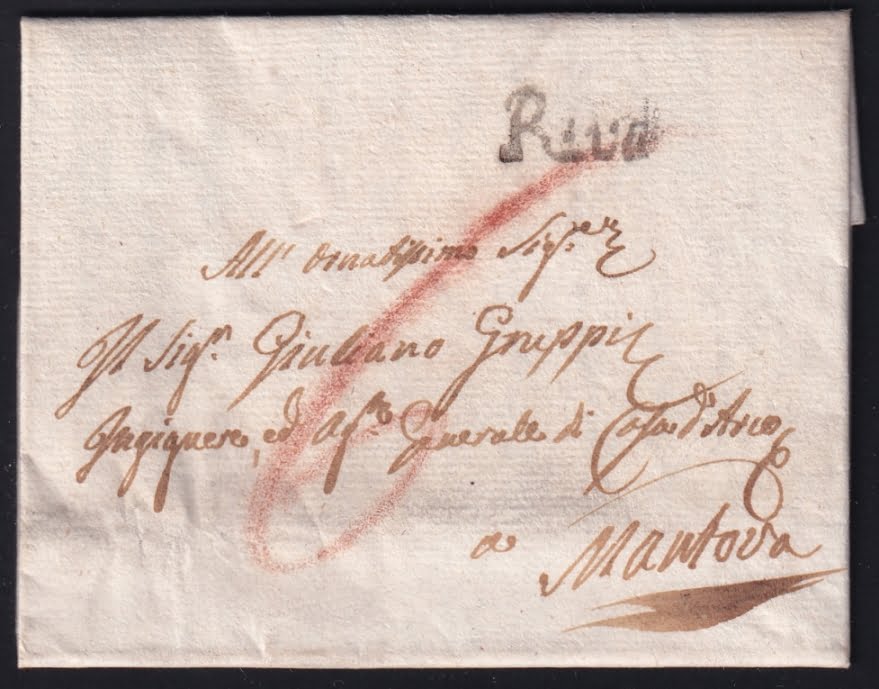 Riva
6
All' Ornatissimo Sig.re
Il Sig.r Giuliano Gruppi
Ingignere, ed Ag.te Generale di Casa d'Arco
a Mantova